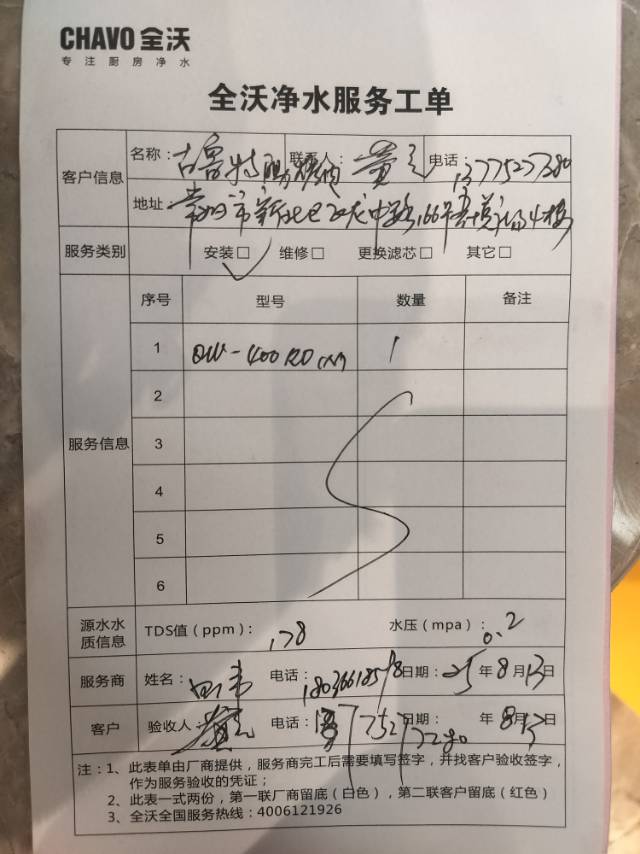 CHAVO 全沃
专注厨房净水
全沃净水服务工单
客户信息
名称： 联系人：黄 电话：13775277380
地址 常州市新北区 中路166号 4楼
服务类别 安装□ 维修□ 更换滤芯□ 其它□
服务信息
序号 型号 数量 备注
1 400 1
2
3
4
5
6
源水水质信息 TDS值（ppm）： 178 水压（mpa）： 0.2
服务商 姓名： 电话： 日期： 25 年 8 月 13 日
客户 验收人： 电话： 日期： 年 8 月 13 日
注：1、此表单由厂商提供，服务商完工后需要填写签字，并找客户验收签字，
作为服务验收的凭证；
2、此表一式两份，第一联厂商留底（白色），第二联客户留底（红色）
3、全沃全国服务热线：4006121926